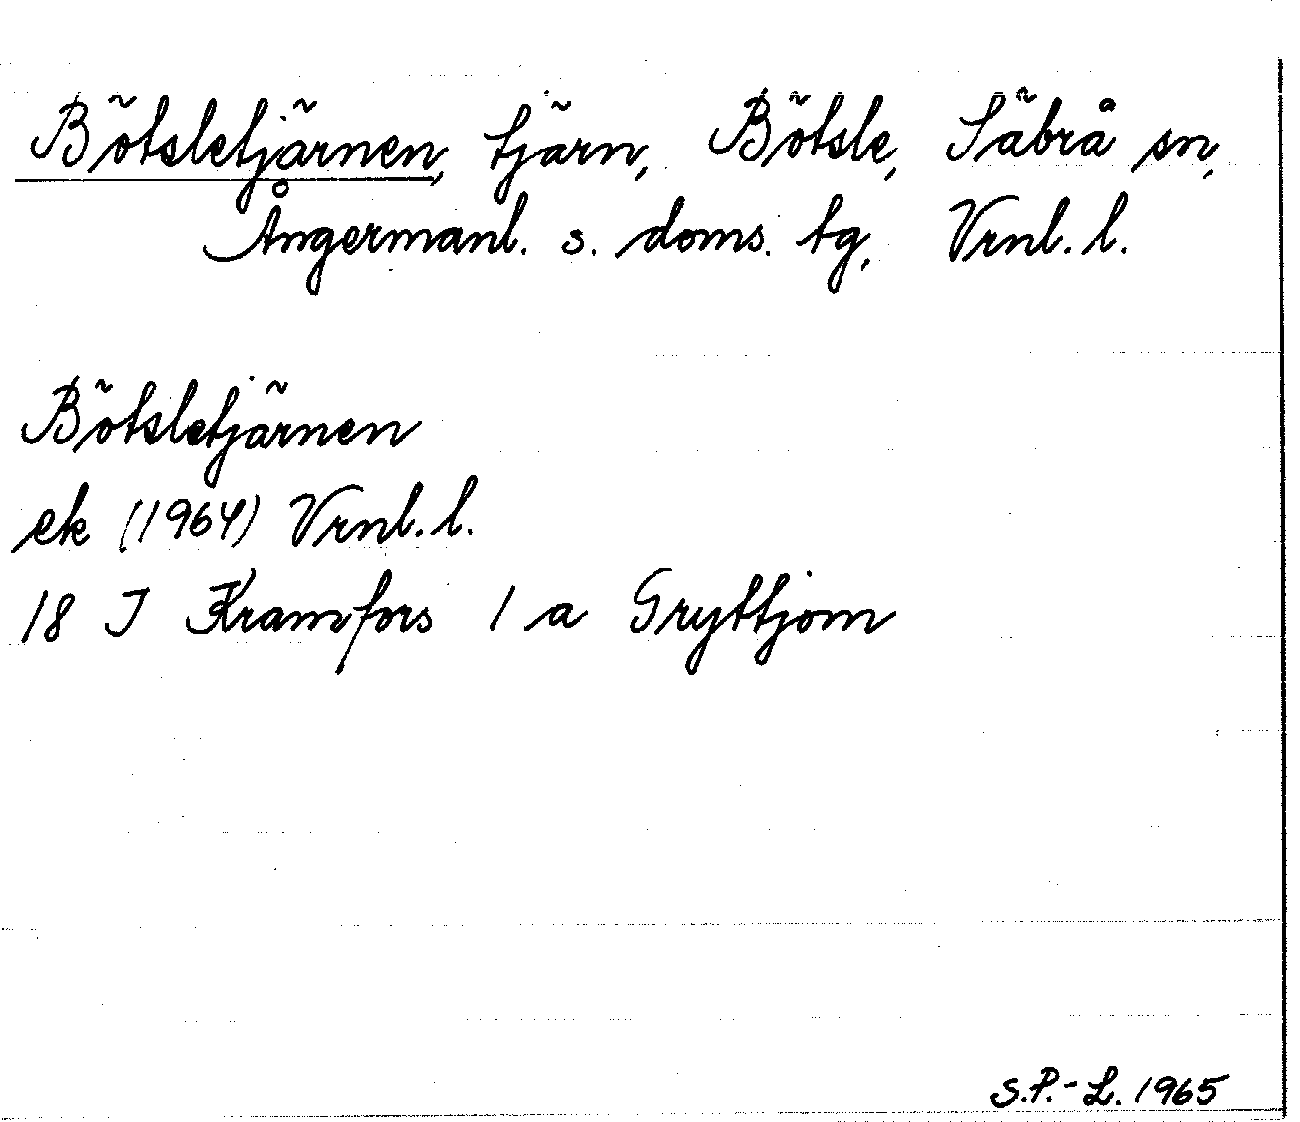 Bötsletjärnen, tjärn, Bötsle, Säbrå sn,
Ångermanl. s. doms. tg, Vrnl. l.
Bötsletjärnen
ek (1964) Vrnl. l.
18 J Kramfors 1 a Gryttjom
S.P.-L. 1965